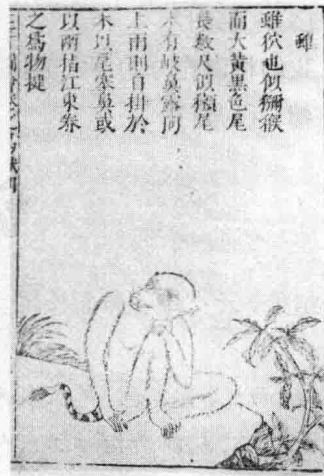 蜼
蜼狖也似獼猴
而大黃黑色尾
長數尺似獺尾
末有岐鼻露向
上雨則自掛於
木以尾塞鼻或
以兩指江東養
之爲物捷